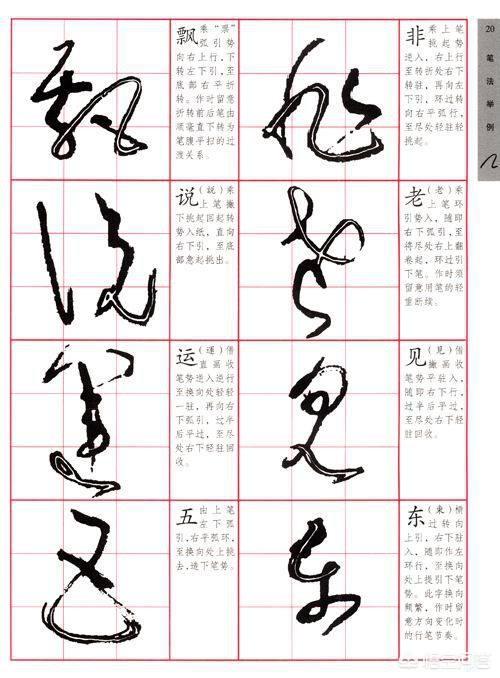 20
笔法举例
飘 乘“票”
弧引势
向右上行，下
转左下引，至
底部右平折
转。作时留意
折转前后笔由
顺毫直下转为
笔腹平扫的过
渡关系。
非 乘上笔
挑起势
逆入，右上行
至转折处右下
转驻，再向左
下引，环过转
向右平弧行，
至尽处轻驻轻
挑起。
说 (説)乘
上笔撇
下挑起回起转
势入纸，直向
右下引，至底
部意起挑出。
老 (老)乘
上笔环
引势入，随即
右下弧引，至
将尽处右上翻
卷起，环过引
下笔。作时须
留意用笔的轻
重断续。
运 (運)借
直画收
笔势逆入逆行
至换向处轻轻
一驻，再向右
下弧引，过半
后平过，至尽
处右下轻驻回
收。
见 (見)借
撇画收
笔势平驻入，
随即右下行，
过半后平过，
至尽处右下轻
驻回收。
五 由上笔
左下弧
引，右平弧环，
至换向处上挑
去，造下笔势。
东 (東)横
过转向
上引，右下驻
入，随即作左
环行，至换向
处上提引下笔
势。此字换向
频繁，作时留
意方向变化时
的行笔节奏。
飘
非
说
老
运
见
五
东
悟空问答